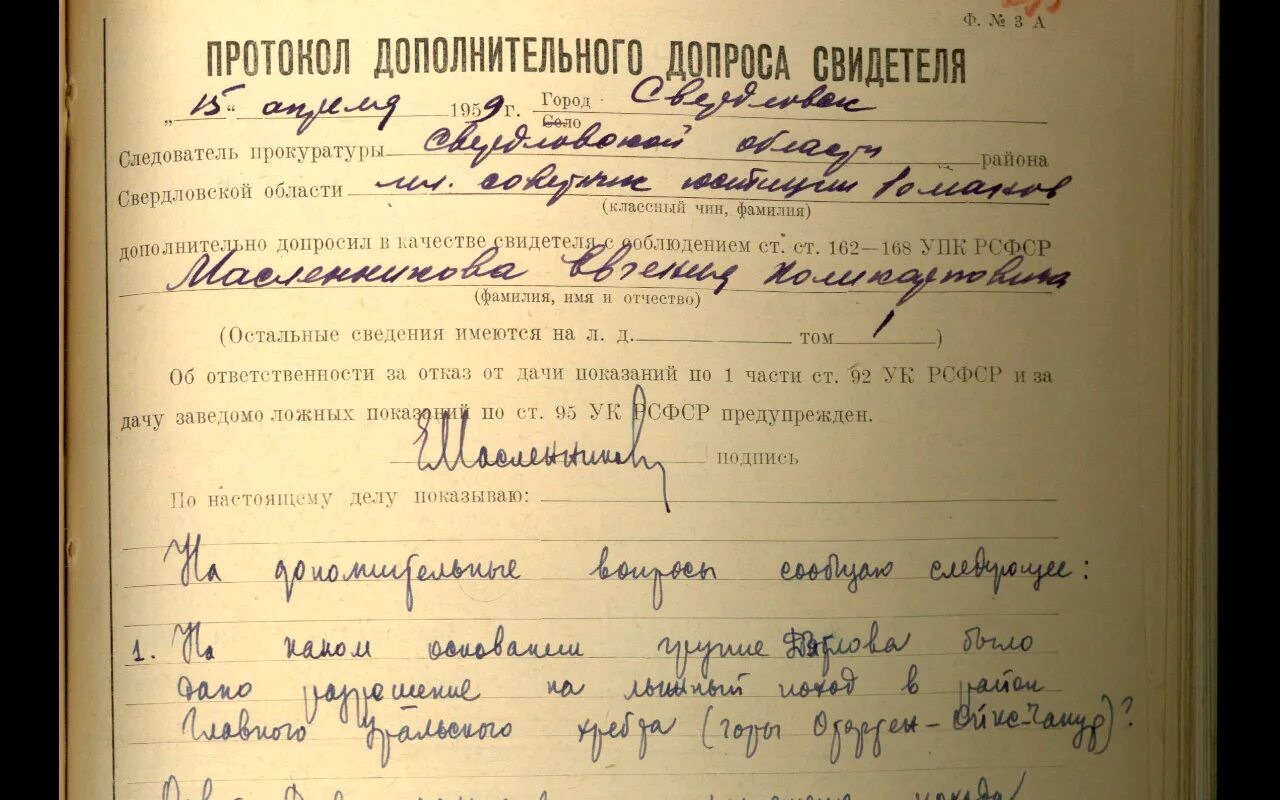 Ф. № 3 А
ПРОТОКОЛ ДОПОЛНИТЕЛЬНОГО ДОПРОСА СВИДЕТЕЛЯ
„15“ апреля 1959 г. Город Свердловск
Село
Следователь прокуратуры Свердловской области района
Свердловской области мл. советник юстиции Романов
(классный чин, фамилия)
дополнительно допросил в качестве свидетеля с соблюдением ст. ст. 162—168 УПК РСФСР
Масленникова Евгения Поликарповича
(фамилия, имя и отчество)
(Остальные сведения имеются на л. д. том 1)
Об ответственности за отказ от дачи показаний по 1 части ст. 92 УК РСФСР и за
дачу заведомо ложных показаний по ст. 95 УК РСФСР предупрежден.
ЕМасленников подпись
По настоящему делу показываю:
На дополнительные вопросы сообщаю следующее:
1. На каком основании группе Дятлова было
дано разрешение на лыжный поход в район
Главного Уральского хребта (горы Отортен-Ойкс-Чакур)?
похода